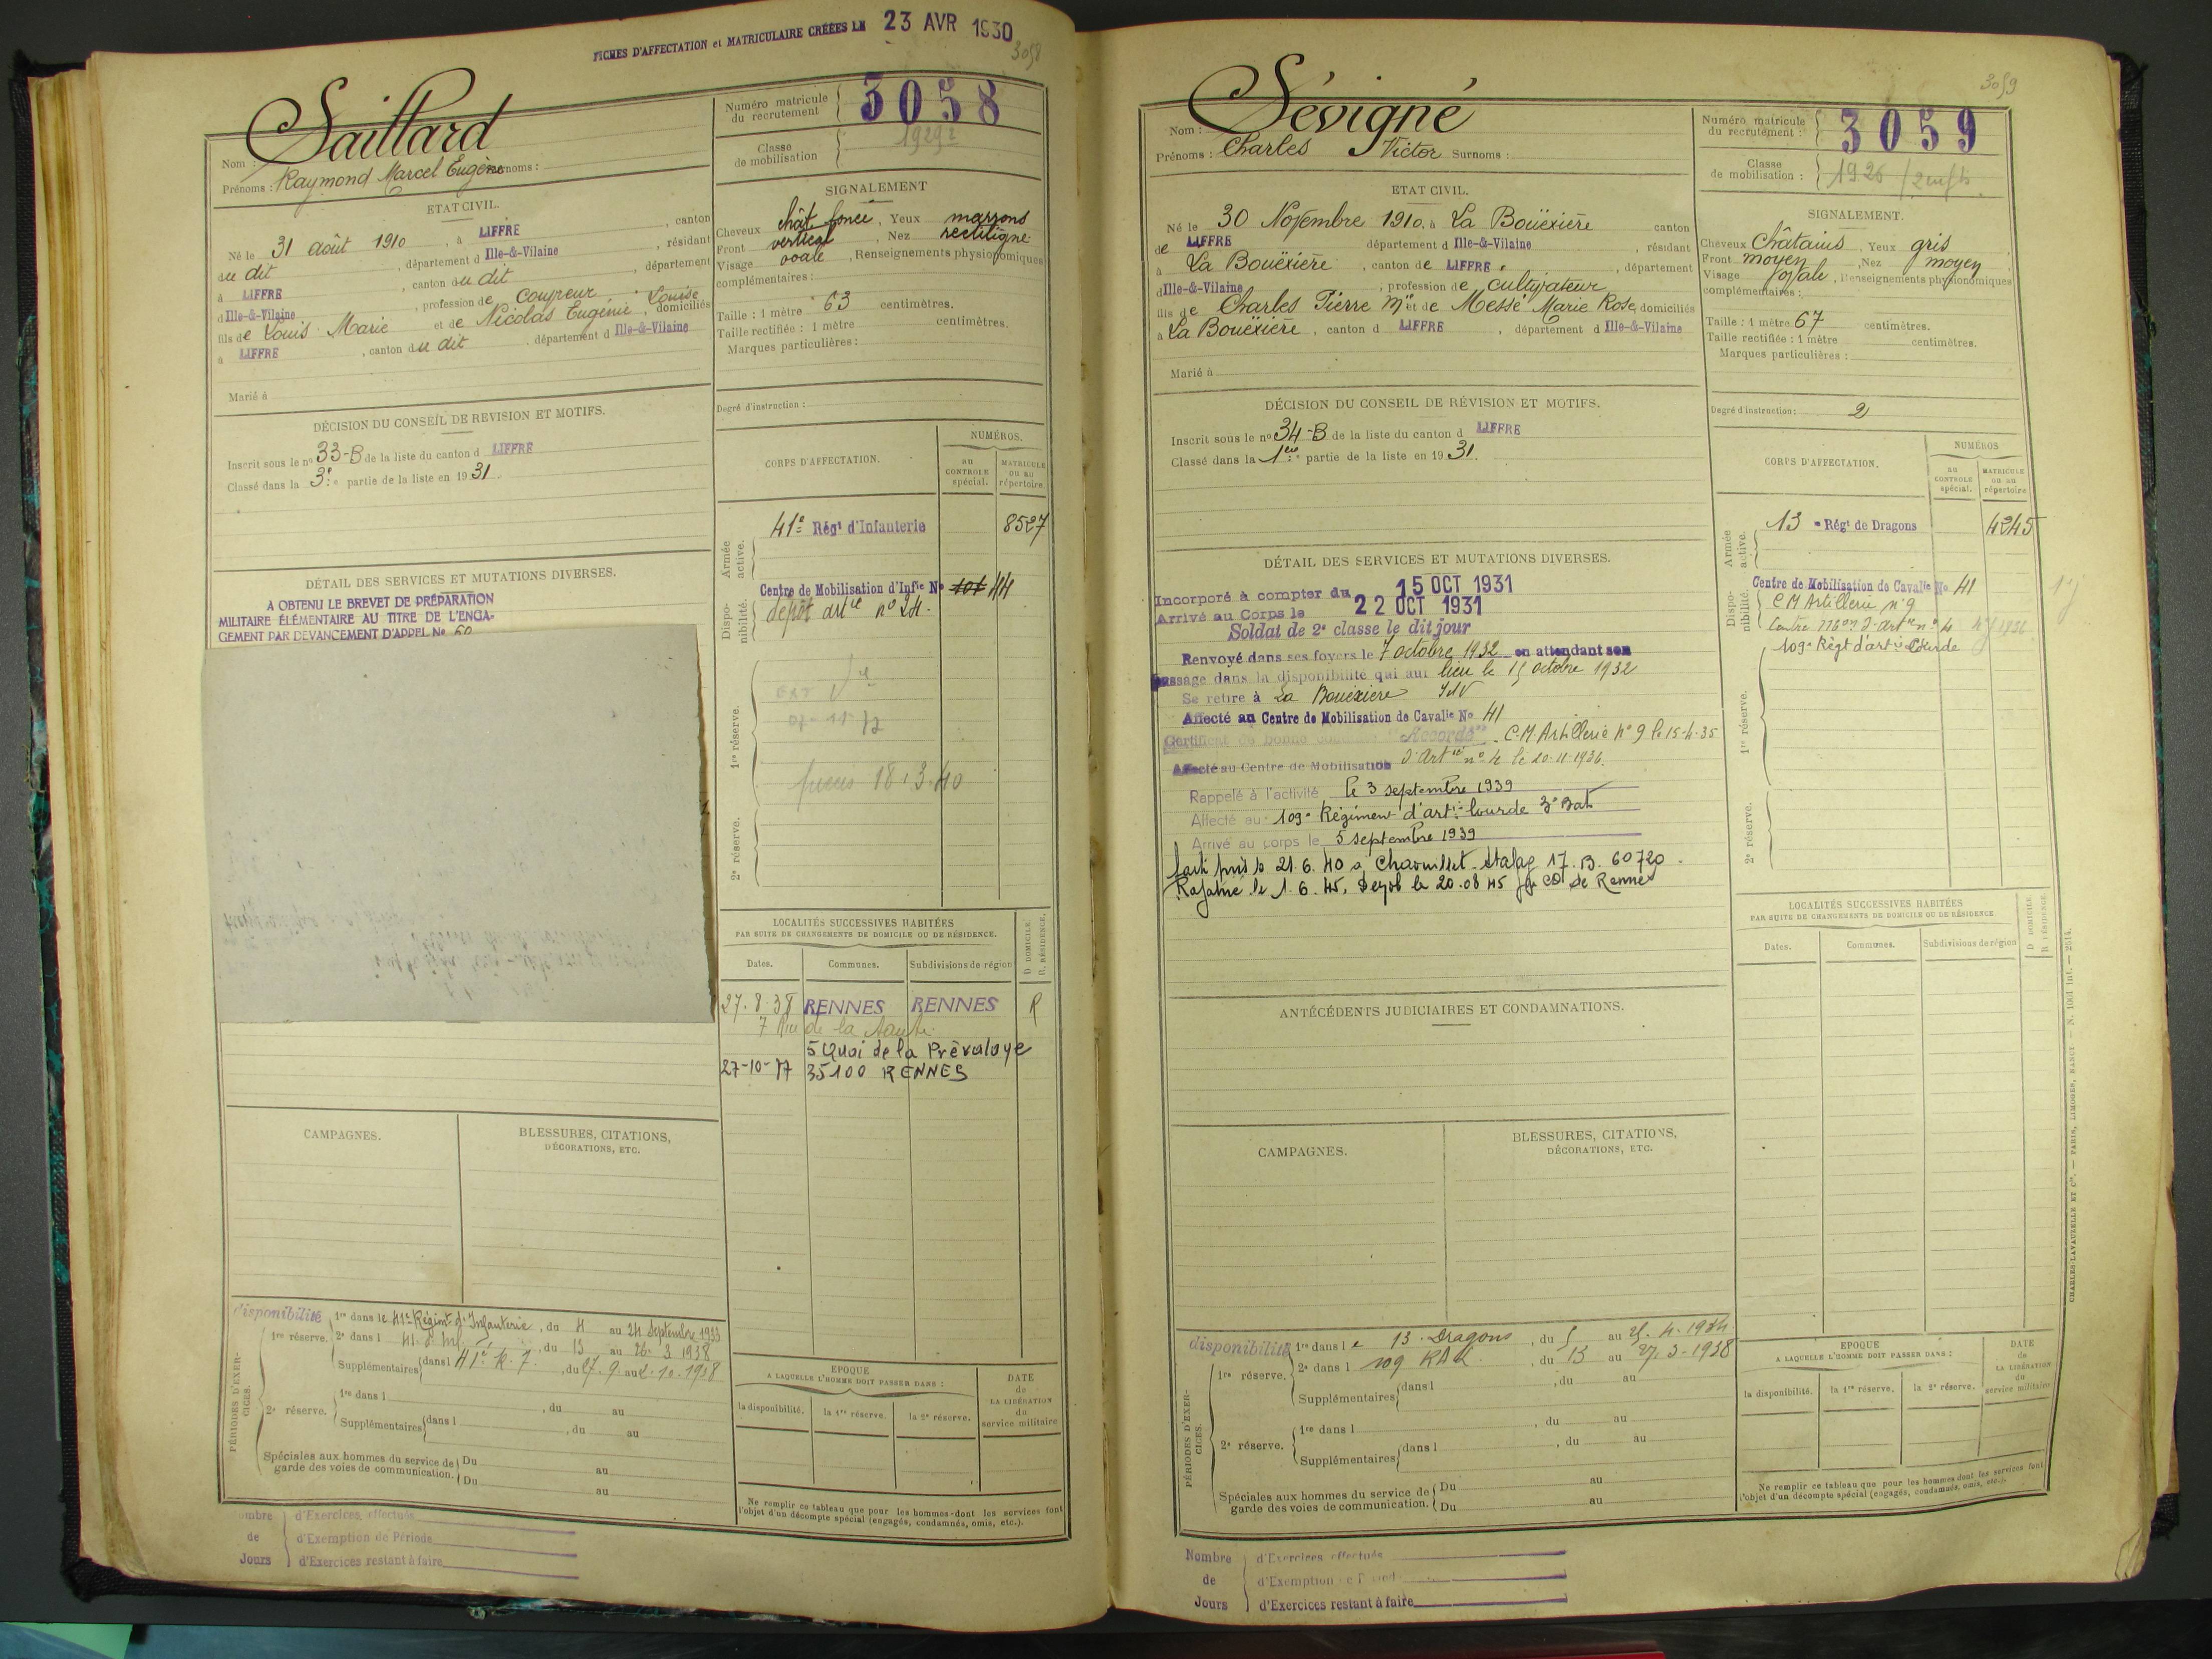 FICHES D'AFFECTATION et MATRICULAIRE CRÉÉES LE 23 AVR 1930
3058
Saillard
Nom :
Prénoms : Raymond Marcel Eugène Surnoms :
Numéro matricule du recrutement 3058
Classe de mobilisation
ETAT CIVIL.
Né le 31 août 1910, à LIFFRE, canton
du dit, département d Ille-&-Vilaine, résidant
à LIFFRE, canton du dit, département
d Ille-&-Vilaine, profession de Coupeur
fils de Louis Marie et de Nicolas Eugénie Louise, domiciliés
à LIFFRE, canton du dit, département d Ille-&-Vilaine
Marié à
SIGNALEMENT
Cheveux chât foncé, Yeux marrons
Front vertical, Nez rectiligne
Visage ovale, Renseignements physionomiques
complémentaires :
Taille : 1 mètre 63 centimètres.
Taille rectifiée : 1 mètre centimètres.
Marques particulières :
Degré d'instruction :
DÉCISION DU CONSEIL DE REVISION ET MOTIFS.
Inscrit sous le no 33-B de la liste du canton d LIFFRE
Classé dans la 3e partie de la liste en 1931.
DÉTAIL DES SERVICES ET MUTATIONS DIVERSES.
A OBTENU LE BREVET DE PRÉPARATION
MILITAIRE ÉLÉMENTAIRE AU TITRE DE L'ENGA-
GEMENT PAR DEVANCEMENT D'APPEL No 60
CORPS D'AFFECTATION.
NUMÉROS.
au CONTROLE spécial.
MATRICULE ou au répertoire
Armée active.
41e Régt d'Infanterie 8527
Dispo-nibilité.
Centre de Mobilisation d'Infie No 101 44
dépôt artie no 24.
1re réserve.
18.3.40
2e réserve.
LOCALITÉS SUCCESSIVES HABITÉES
PAR SUITE DE CHANGEMENTS DE DOMICILE OU DE RÉSIDENCE.
D DOMICILE. R. RÉSIDENCE.
Dates. Communes. Subdivisions de région
27.8.38 RENNES RENNES R
7 Rue de la
5 Quai de la Prévalaye
27-10-77 35100 RENNES
CAMPAGNES.
BLESSURES, CITATIONS,
DÉCORATIONS, ETC.
PÉRIODES D'EXERCICES.
disponibilité 1re dans le 41e Régimt d'Infanterie, du 4 au 24 Septembre 1933
1re réserve. 2e dans l 41. d'Inf., du 13 au 26. 3 1938
Supplémentaires dans l 41e R.I., du 27.9. au 2.10.1938
2e réserve. 1re dans l, du au
Supplémentaires dans l, du au
Spéciales aux hommes du service de garde des voies de communication. Du au
Du au
EPOQUE
A LAQUELLE L'HOMME DOIT PASSER DANS :
la disponibilité. la 1re réserve. la 2e réserve.
DATE de LA LIBÉRATION du service militaire
Ne remplir ce tableau que pour les hommes dont les services font
l'objet d'un décompte spécial (engagés, condamnés, omis, etc.).
ombre d'Exercices effectués
de d'Exemption de Période
Jours d'Exercices restant à faire
3059
Sévigné
Nom :
Prénoms : Charles Victor Surnoms :
Numéro matricule du recrutement : 3059
Classe de mobilisation : 1926 / 2 enfts
ETAT CIVIL.
Né le 30 Novembre 1910, à La Bouëxière canton
de LIFFRE département d Ille-&-Vilaine, résidant
à La Bouëxière, canton de LIFFRE, département
d Ille-&-Vilaine, profession de cultivateur
fils de Charles Pierre Mie et de Messé Marie Rose, domiciliés
à La Bouëxière, canton d LIFFRE, département d Ille-&-Vilaine
Marié à
SIGNALEMENT.
Cheveux Châtains, Yeux gris
Front moyen, Nez moyen
Visage ovale, Renseignements physionomiques
complémentaires :
Taille : 1 mètre 67 centimètres.
Taille rectifiée : 1 mètre centimètres.
Marques particulières :
Degré d'instruction : 2
DÉCISION DU CONSEIL DE RÉVISION ET MOTIFS.
Inscrit sous le no 34-B de la liste du canton d LIFFRE
Classé dans la 1ere partie de la liste en 1931.
DÉTAIL DES SERVICES ET MUTATIONS DIVERSES.
Incorporé à compter du 15 OCT 1931
Arrivé au Corps le 22 OCT 1931
Soldat de 2e classe le dit jour
Renvoyé dans ses foyers le 7 octobre 1932 en attendant son
passage dans la disponibilité qui aur lieu le 15 octobre 1932
Se retire à La Bouëxière I&V
Affecté au Centre de Mobilisation de Cavalie No 41
Certificat de bonne conduite "Accordé". C.M Artillerie no 9 le 15-4-35
Affecté au Centre de Mobilisation d'Artie no 4 le 20-11-1936.
Rappelé à l'activité le 3 septembre 1939
Affecté au 109e Régiment d'artie lourde 3e Bat
Arrivé au corps le 5 septembre 1939
Fait pris le 21.6.40 à Stalag 17.B. 60720.
Rapatrié le 1.6.45, Démob le 20.08 45 par CD de Rennes
CORPS D'AFFECTATION.
NUMÉROS
au CONTROLE spécial.
MATRICULE ou au répertoire
Armée active.
13e Régt de Dragons 4245
Dispo-nibilité.
Centre de Mobilisation de Cavalie No 41
C M Artillerie no 9
Centre Mbon d'artie no 4
109e Régt d'artie lourde
1re réserve.
2e réserve.
LOCALITÉS SUCCESSIVES HABITÉES
PAR SUITE DE CHANGEMENTS DE DOMICILE OU DE RÉSIDENCE
D DOMICILE R RÉSIDENCE
Dates. Communes. Subdivisions de région
ANTÉCÉDENTS JUDICIAIRES ET CONDAMNATIONS.
CAMPAGNES.
BLESSURES, CITATIONS,
DÉCORATIONS, ETC.
PÉRIODES D'EXERCICES.
disponibilité 1re dans le 13. Dragons, du 5 au 25.4.1934
1re réserve. 2e dans l 109 RAL, du 13 au 27.3-1938
Supplémentaires dans l, du au
2e réserve. 1re dans l, du au
Supplémentaires dans l, du au
Spéciales aux hommes du service de garde des voies de communication. Du au
Du au
EPOQUE
A LAQUELLE L'HOMME DOIT PASSER DANS :
la disponibilité. la 1re réserve. la 2e réserve.
DATE de LA LIBÉRATION du service militaire
Ne remplir ce tableau que pour les hommes dont les services font
l'objet d'un décompte spécial (engagés, condamnés, omis, etc.).
Nombre d'Exercices effectués
de d'Exemption de Période
Jours d'Exercices restant à faire
CHARLES-LAVAUZELLE ET Cie. — PARIS, LIMOGES, NANCY. — N. 1001 Int. — 2514.